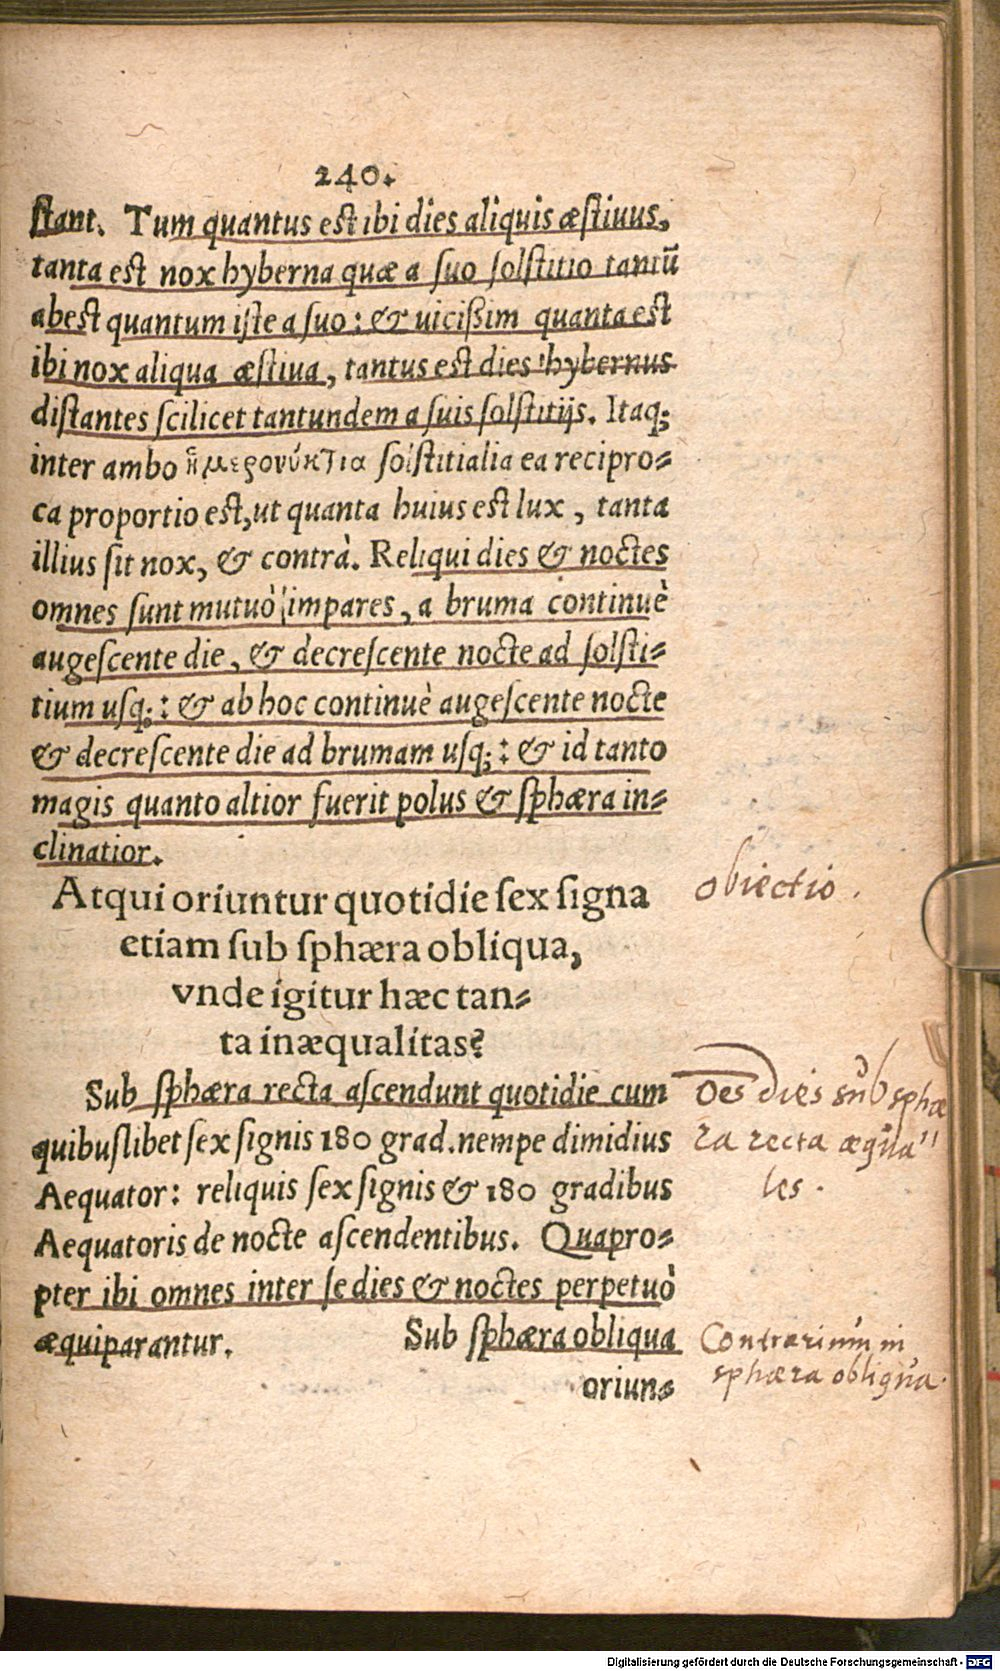 240.
stant. Tum quantus est ibi dies aliquis æstiuus,
tanta est nox hyberna quæ a suo solstitio tantũ
abest quantum iste a suo: & uicißim quanta est
ibi nox aliqua æstiua, tantus est dies hybernus
distantes scilicet tantundem a suis solstitijs. Itaq;
inter ambo ἡμερονύκτια solstitialia ea recipro-
ca proportio est, ut quanta huius est lux, tanta
illius sit nox, & contrà. Reliqui dies & noctes
omnes sunt mutuò impares, a bruma continuè
augescente die, & decrescente nocte ad solsti-
tium usq;: & ab hoc continuè augescente nocte
& decrescente die ad brumam usq;: & id tanto
magis quanto altior fuerit polus & sphæra in-
clinatior.
Atqui oriuntur quotidie sex signa
obiectio.
etiam sub sphæra obliqua,
vnde igitur hæc tan-
ta inæqualitas?
Sub sphæra recta ascendunt quotidie cum
quibuslibet sex signis 180 grad. nempe dimidius
Aequator: reliquis sex signis & 180 gradibus
Aequatoris de nocte ascendentibus. Quapro-
pter ibi omnes inter se dies & noctes perpetuò
æquiparantur. Sub sphæra obliqua
oriun-
Oēs dies sub sphæ
ra recta æqua"
les.
Contrarium in
sphæra obliqua.
Digitalisierung gefördert durch die Deutsche Forschungsgemeinschaft - DFG